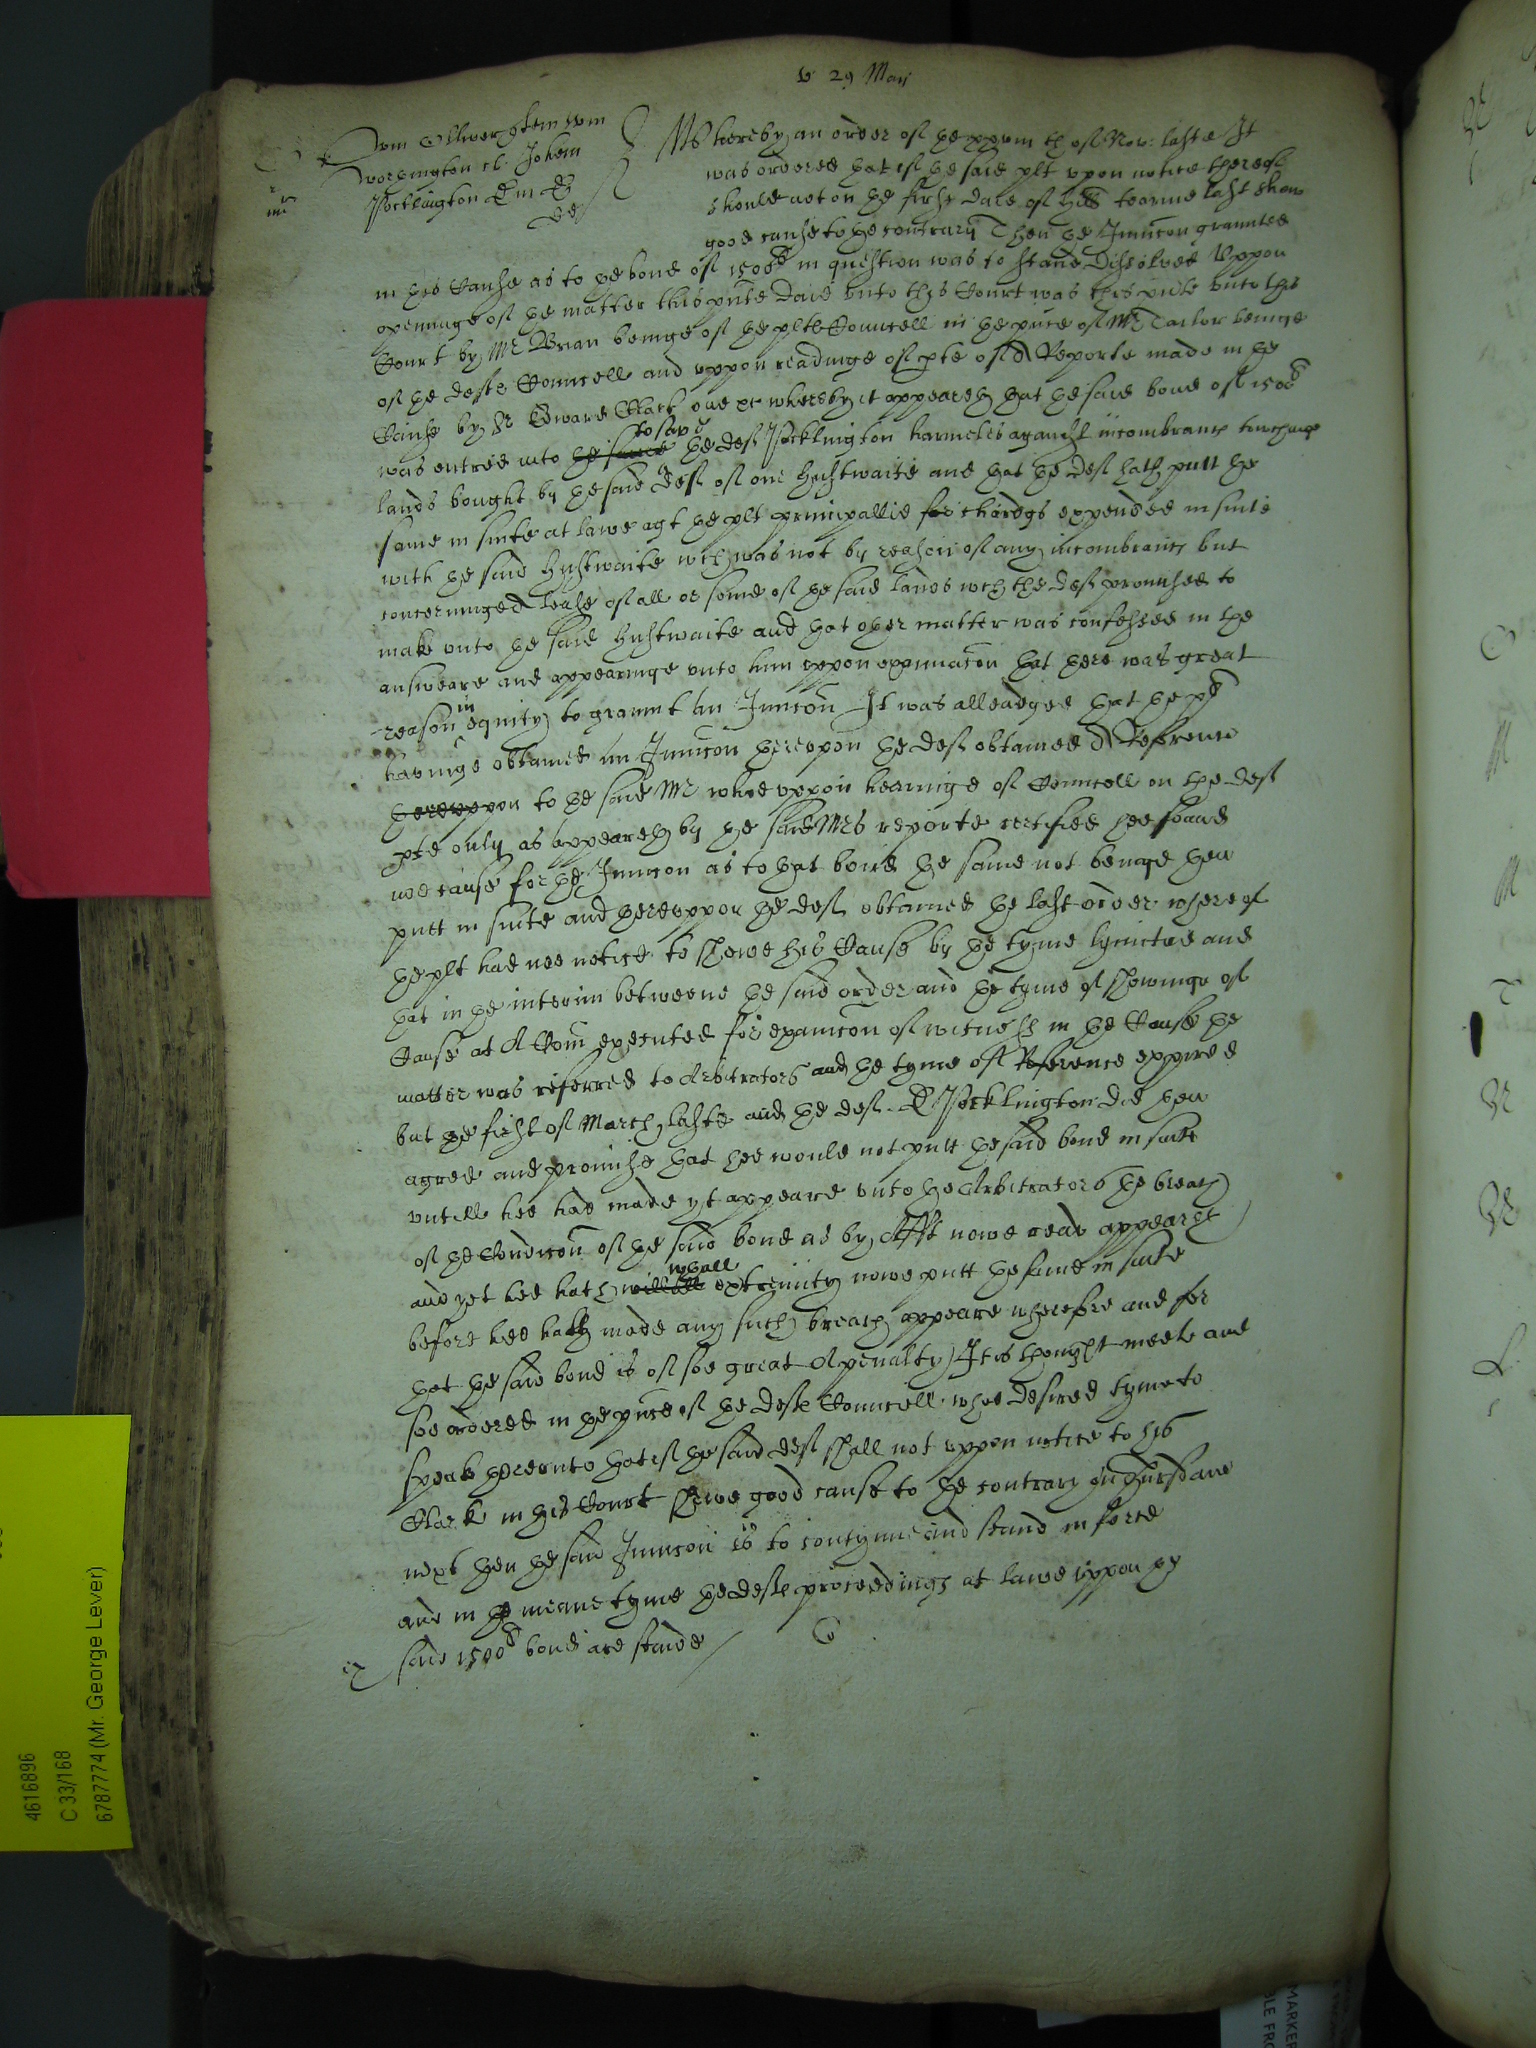 v 29 Maij
Wm Ollivergent wm
Worthington cl. Johem
Pocklington Em &
def
Whereby an order of ye xxviii th of Nov: laste It
was ordered yat if ye said plt vpon notice thereof
should not on ye first daie of this tearme last shew
good cause to ye contrary Then ye Iniuncon graunted
in this Cause as to ye bond of 1500li in question was to stand dissolved Vppon
openinge of ye matter this pnte daie vnto this Court was this pnte vnto this
Court by Mr Brian beinge of ye plts Councell in ye pnce of Mr Tailor beinge
of ye defts Councell and vppon readinge of pte of A Reporte made in ye
Cause by Sr Edward Clark one &c whereby it appeareth yat ye said bond of 1500li
was entred into ye same to save ye deft Pocklington harmeles against incombrancs touchinge
lands bought by ye said deft of one Hustwaite and yat ye deft hath putt ye
same in suite at lawe agt ye plt principallie for chardgs expended in suite
with ye said Hustwaite wch was not by reason of any incombrancs but
concerninge A lease of all or some of ye said lands wch the deft promised to
make vnto ye said Hustwaite and yat other matter was confessed in the
answeare and appearinge vnto him vppon exaiacon yat there was great
reason in equity to graunt an Iniuncon It was alleadged yat ye plt
havinge obtained an Iniuncon thereupon ye deft obtained A Reference
thereuppon to ye said Mr whoe vppon hearinge of Councell on the deft
pte only as appeareth by ye said Mrs reporte certified hee found
noe cause for ye Iniuncon as to yat bond ye same not beinge then
putt in suite and thereuppon ye deft obtained ye last order whereof
ye plt had noe notice to shewe his Cause by ye tyme lymitted and
yat in ye interim betweene ye said order and ye tyme of shewinge of
Cause at A Com executed for exaiacon of witness in ye Cause ye
matter was referred to Arbitrators and ye tyme of Reference expired
but ye first of March laste and ye deft Pocklington did then
agree and promise yat hee would not putt ye said bond in suite
vntill hee had made yt appeare vnto ye Arbitrators ye breach
of ye Condicon of ye said bond as by Afft nowe read appeareth
and yet hee hath will all wth all extremity nowe putt ye same in suite
before hee hath made any such breach appeare wherefore and for
yat ye said bond is of soe great A penalty It is thought meete and
soe ordered in ye pnce of ye defts Councell whoe desired tyme to
speake thereunto yat if ye said deft shall not vppon notice to his
Clark in this Court shewe good cause to ye contrary on Thursdaie
next then ye said Iniuncon is to contynue and stand in force
and in ye meane tyme ye defts proceedings at lawe vppon ye
said 1500li bond are staied
4616896
C 33/168
6787774 (Mr. George Lever)
MARKER
BLE FRO